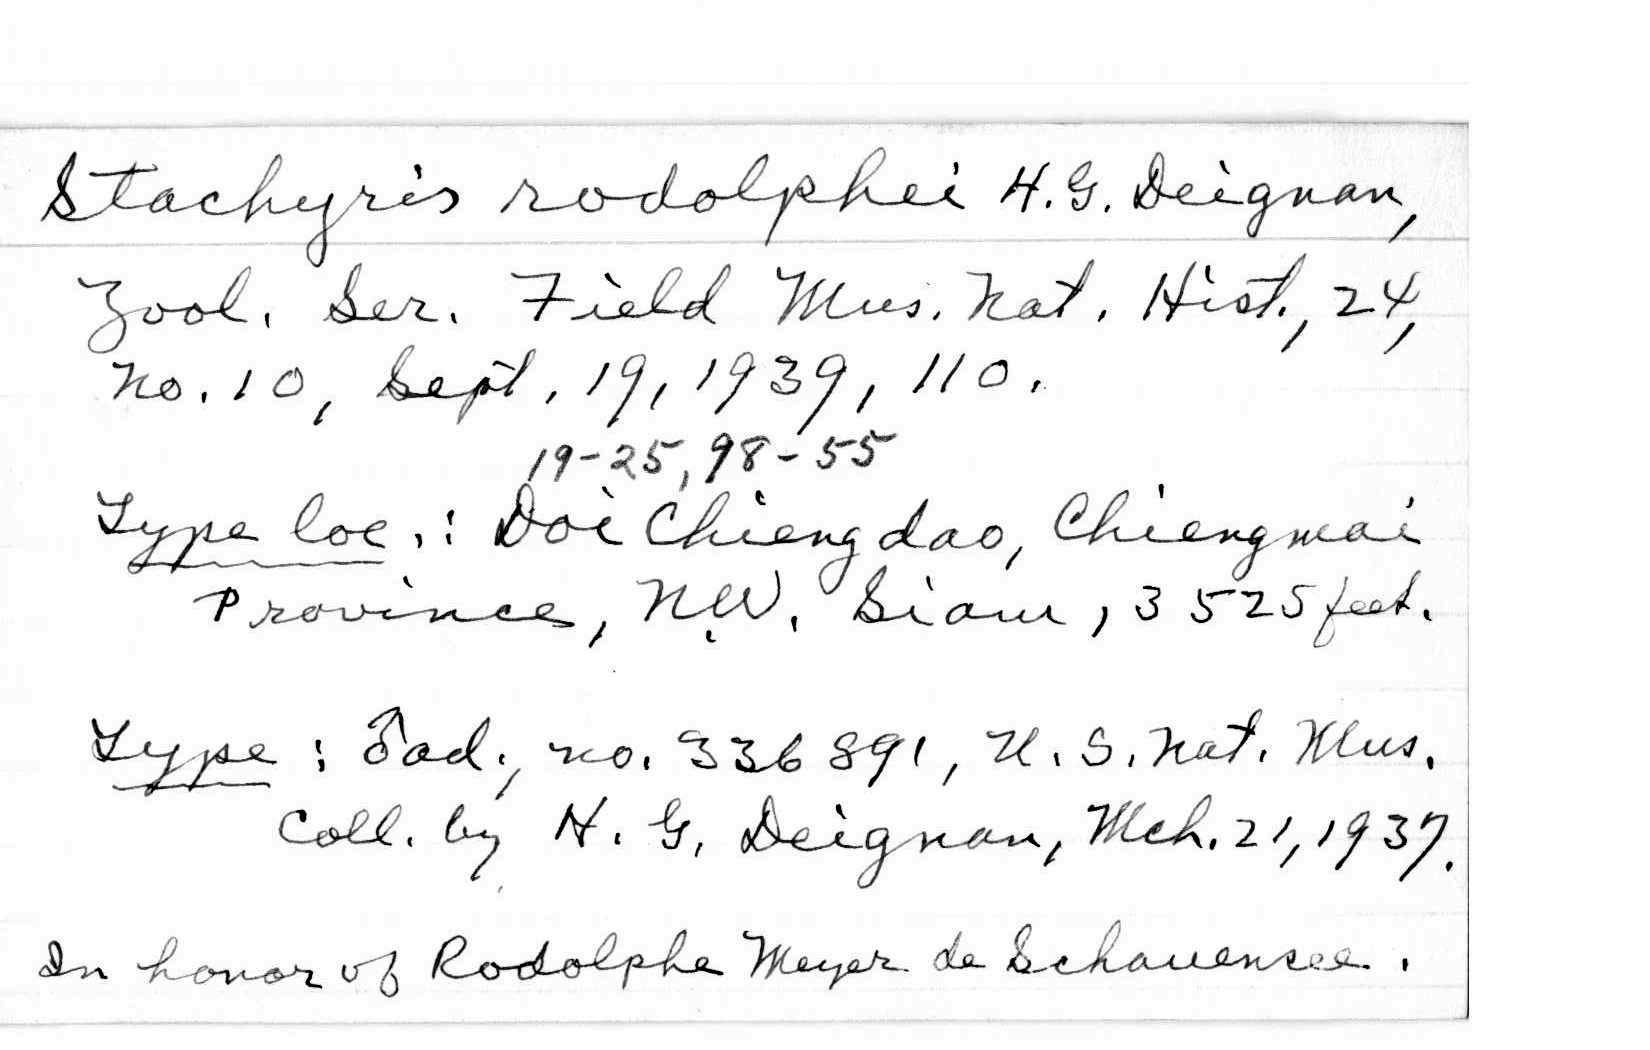 Stachyris rodolphei H.G. Deignan,
Zool. Ser. Field Mus. Nat. Hist., 24,
no. 10, Sept. 19, 1939, 110.
19-25, 98-55
Type loc.: Doi Chiengdao, Chiengmai
Province, N.W. Siam, 3525 feet.
Type: ♂ad., no. 336891, U.S. Nat. Mus.
Coll. by H. G. Deignan, Mch. 21, 1937.
In honor of Rodolphe Meyer de Schauensee.